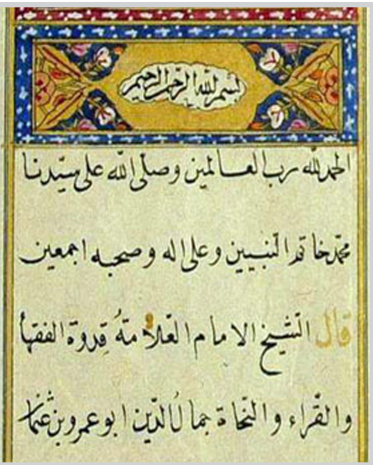 بسم الله الرحمن الرحيم
الحمد لله رب العالمين وصلى الله على سيدنا
محمد خاتم النبيين وعلى اله وصحبه اجمعين
قال الشيخ الامام العلامة قدوة الفقها
والقراء والنحاة جمال الدين ابو عمرو بن عثمان